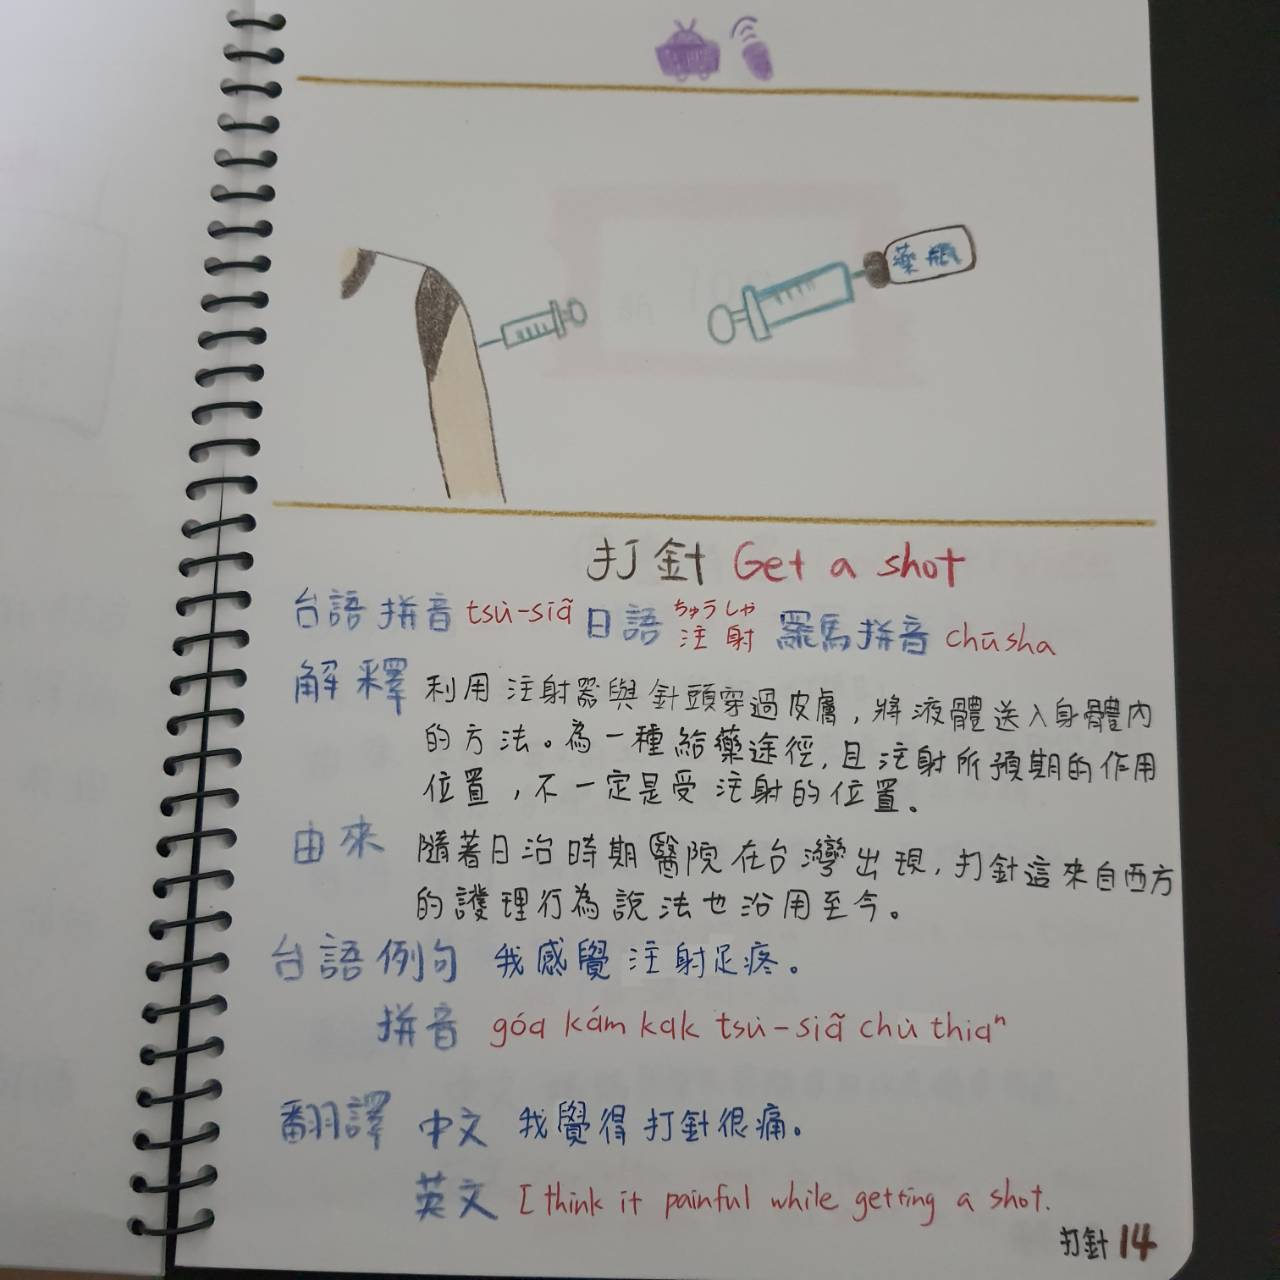 藥瓶
打針 Get a shot
台語拼音 tsù-siā 日語 注射 ちゅうしゃ 羅馬拼音 chūsha
解釋 利用注射器與針頭穿過皮膚,將液體送入身體內
的方法。為一種給藥途徑,且注射所預期的作用
位置,不一定是受注射的位置。
由來 隨著日治時期醫院在台灣出現,打針這來自西方
的護理行為說法也沿用至今。
台語例句 我感覺注射足疼。
拼音 góa kám kak tsù-siā chù thiaⁿ
翻譯 中文 我覺得打針很痛。
英文 I think it painful while getting a shot.
打針 14